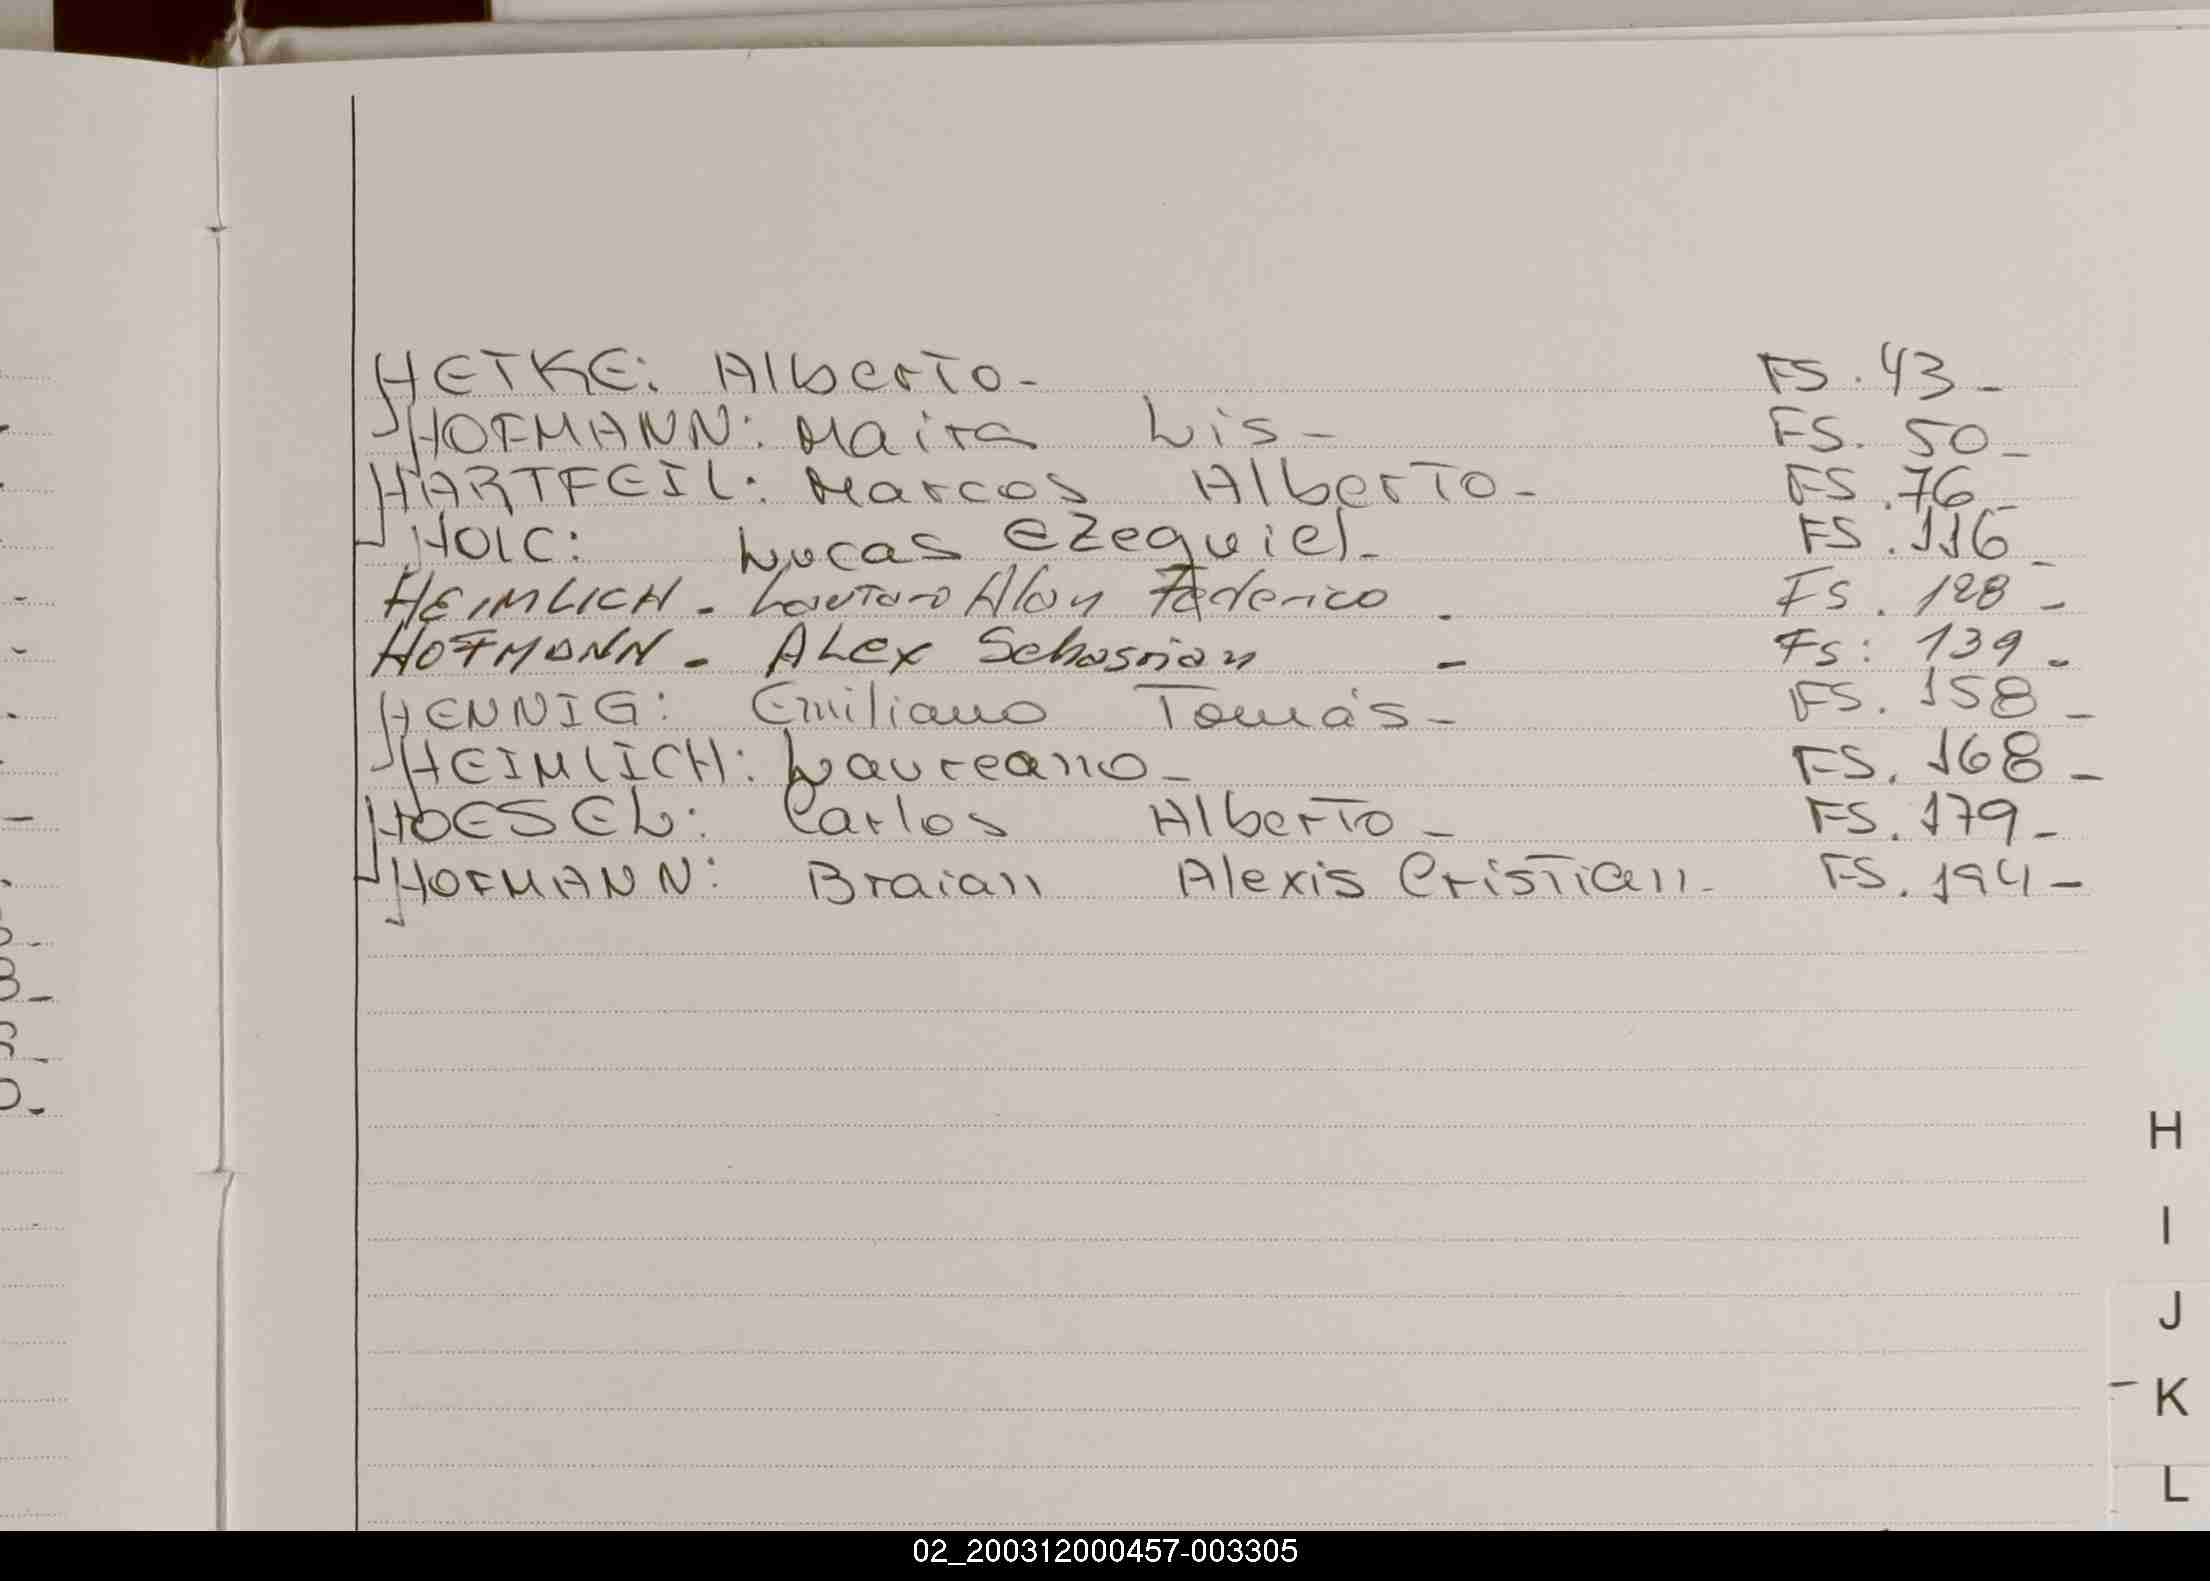 HETKE: Alberto- FS. 43-
HOFMANN: Maira Lis- FS. 50-
HARTFEIL: Marcos Alberto- FS. 76-
HOLC: Lucas Ezequiel- FS. 116-
HEIMLICH- Lautaro Alan Federico- FS. 128-
HOFMANN- Alex Sebastian - Fs: 139-
HENNIG: Emiliano Tomás- FS. 158-
HEIMLICH: Laureano- FS. 168-
HOESEL: Carlos Alberto- FS. 179-
HOFMANN: Braian Alexis Cristian- FS. 194-
H
I
J
K
L
02_200312000457-003305